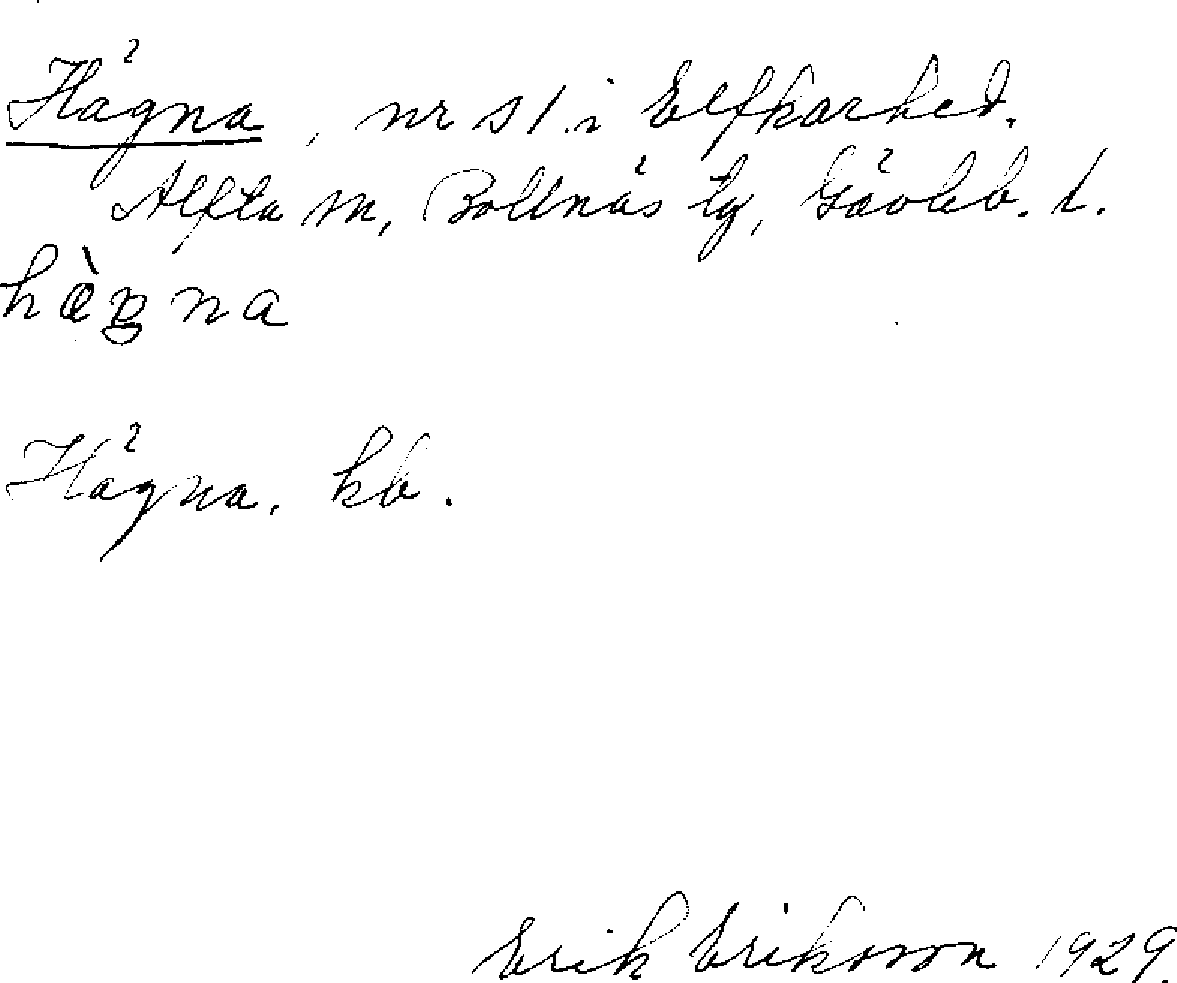 Hägna, nr 51 i Elfkarhed.
Alfta sn, Bollnäs tg, Gävleb. l.
hägna
Hägna, kb.
Erik Eriksson 1929.